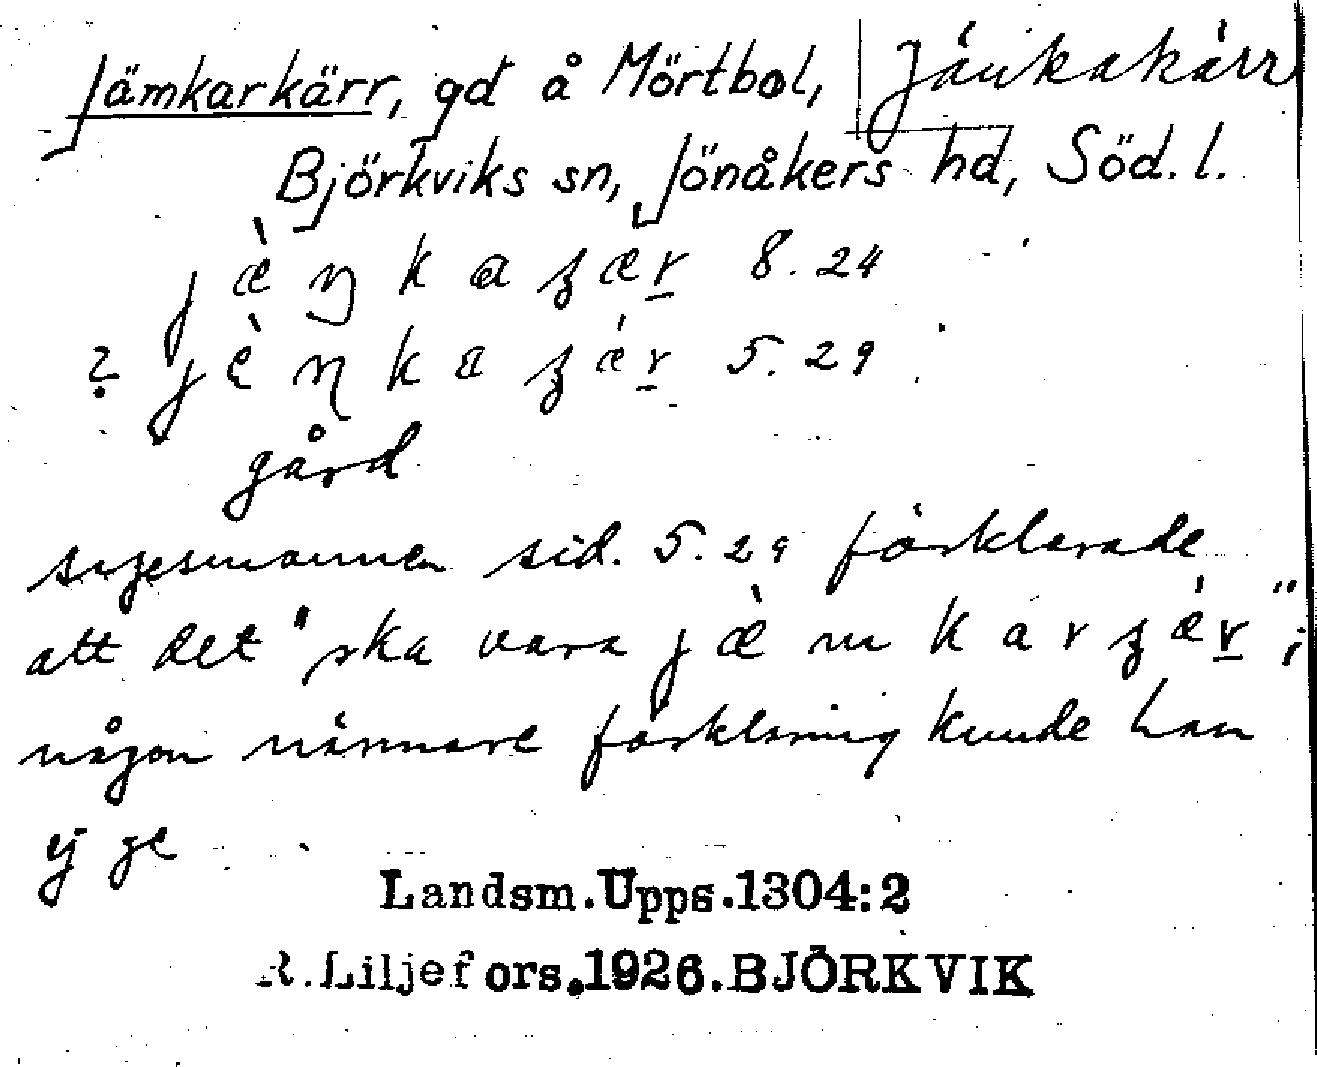 Jämkarkärr, gd å Mörtbol, Jänkakärr
Björkviks sn, Jönåkers hd, Söd. l.
jæ̀ŋkaʒæ̀r 8.24
? jèŋkaʒǽr 5.29
gård
sagesmannen sid. 5.29 förklarade
att det "ska vara jæ̀mkarʒǽr";
någon närmare förklaring kunde han
ej ge
Landsm.Upps.1304:2
R.Liljefors.1926.BJÖRKVIK